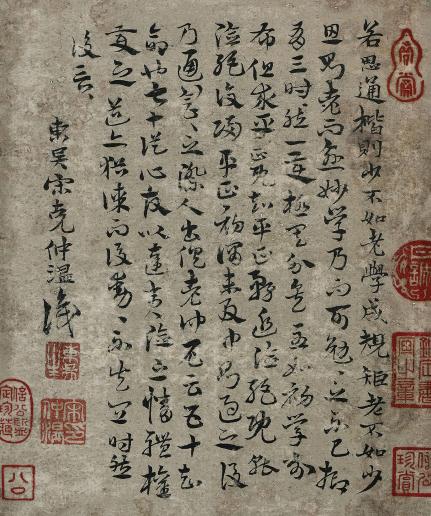 若思通楷則少不如老學成規矩老不如少
思則老而愈妙學乃少而可勉〻之不已抑
有三時然一變極其分矣至如初學分
布但求平正既知平正務追險絕既能
險絕復歸平正初謂未及中則過之後
乃通會〻之際人書俱老仲尼云五十知
命七十從心故以達夷險之情體權
變之道亦猶謀而後動〻不失宜時然
後言〻
東吳宋克仲溫識